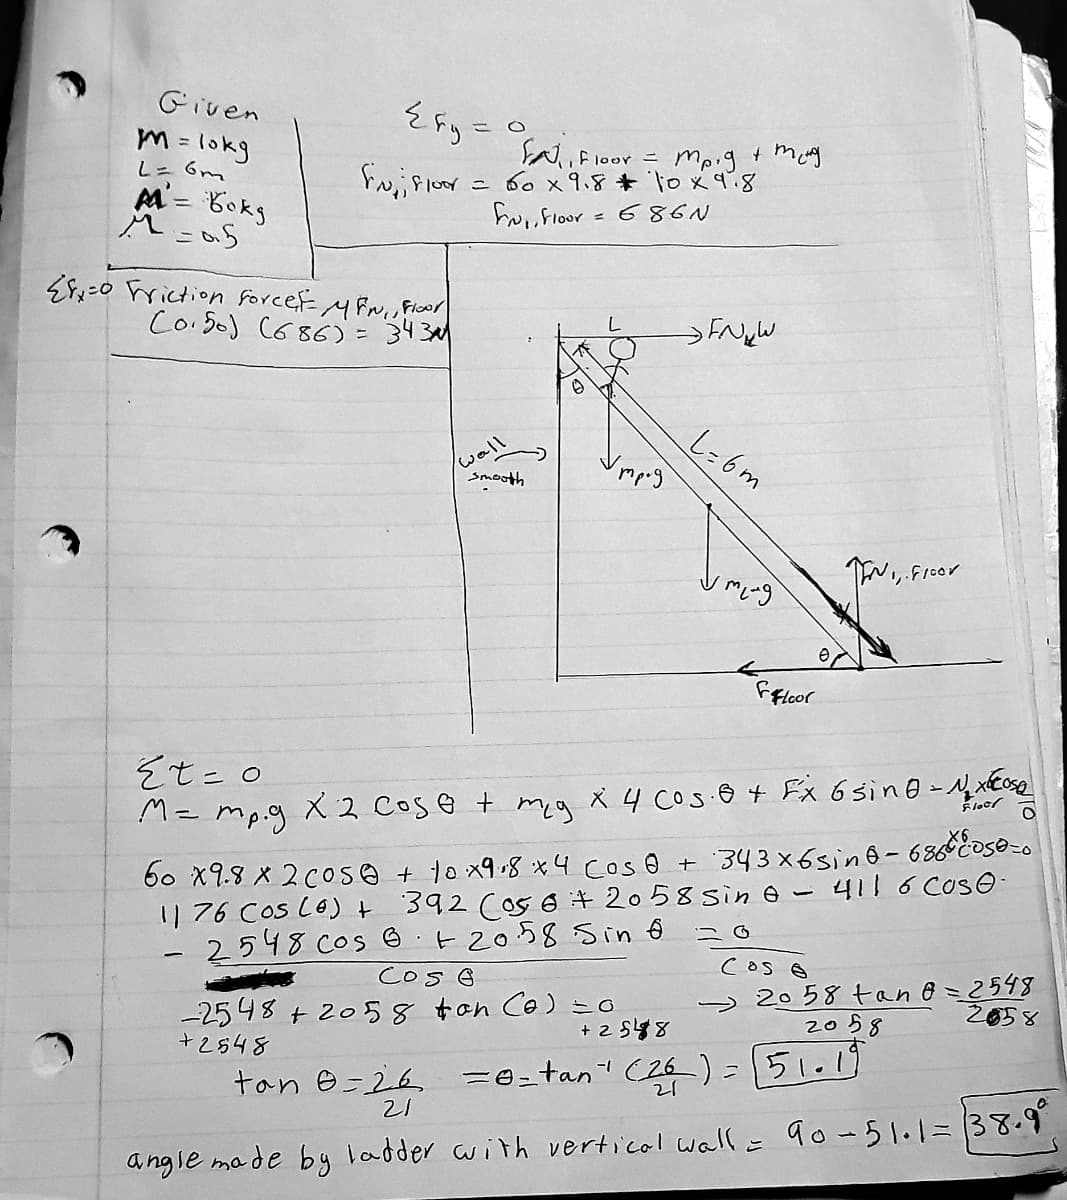 Given
m = 10kg
L = 6m
M' = 60kg
μ = 0.5
ΣFy = 0
FN1, Floor = mp.g + mLg
FN1, floor = 60 x 9.8 + 10 x 9.8
FN1, floor = 686N
ΣFx=0 Friction force f = μ FN1, Floor
(0.50) (686) = 343N
L
FN2W
θ
L=6m
wall
smooth
mp.g
mL-g
FN1, Floor
θ
F Floor
Στ = 0
M = mp.g x 2 cos θ + mLg x 4 cos.θ + F x 6 sin θ - N1 Floor x 6 cos θ = 0
60 x9.8 x 2 cos θ + 10 x9.8 x 4 cos θ + 343 x 6 sin θ - 686 x6 cos θ = 0
1176 cos (θ) + 392 cos θ + 2058 sin θ - 4116 cos θ.
- 2548 cos θ + 2058 sin θ = 0
cos θ cos θ
-2548 + 2058 tan (θ) = 0 → 2058 tan θ = 2548
+2548 +2548 2058 2058
tan θ = 26/21 = θ = tan⁻¹ (26/21) = 51.1°
angle made by ladder with vertical wall = 90 - 51.1 = 38.9°